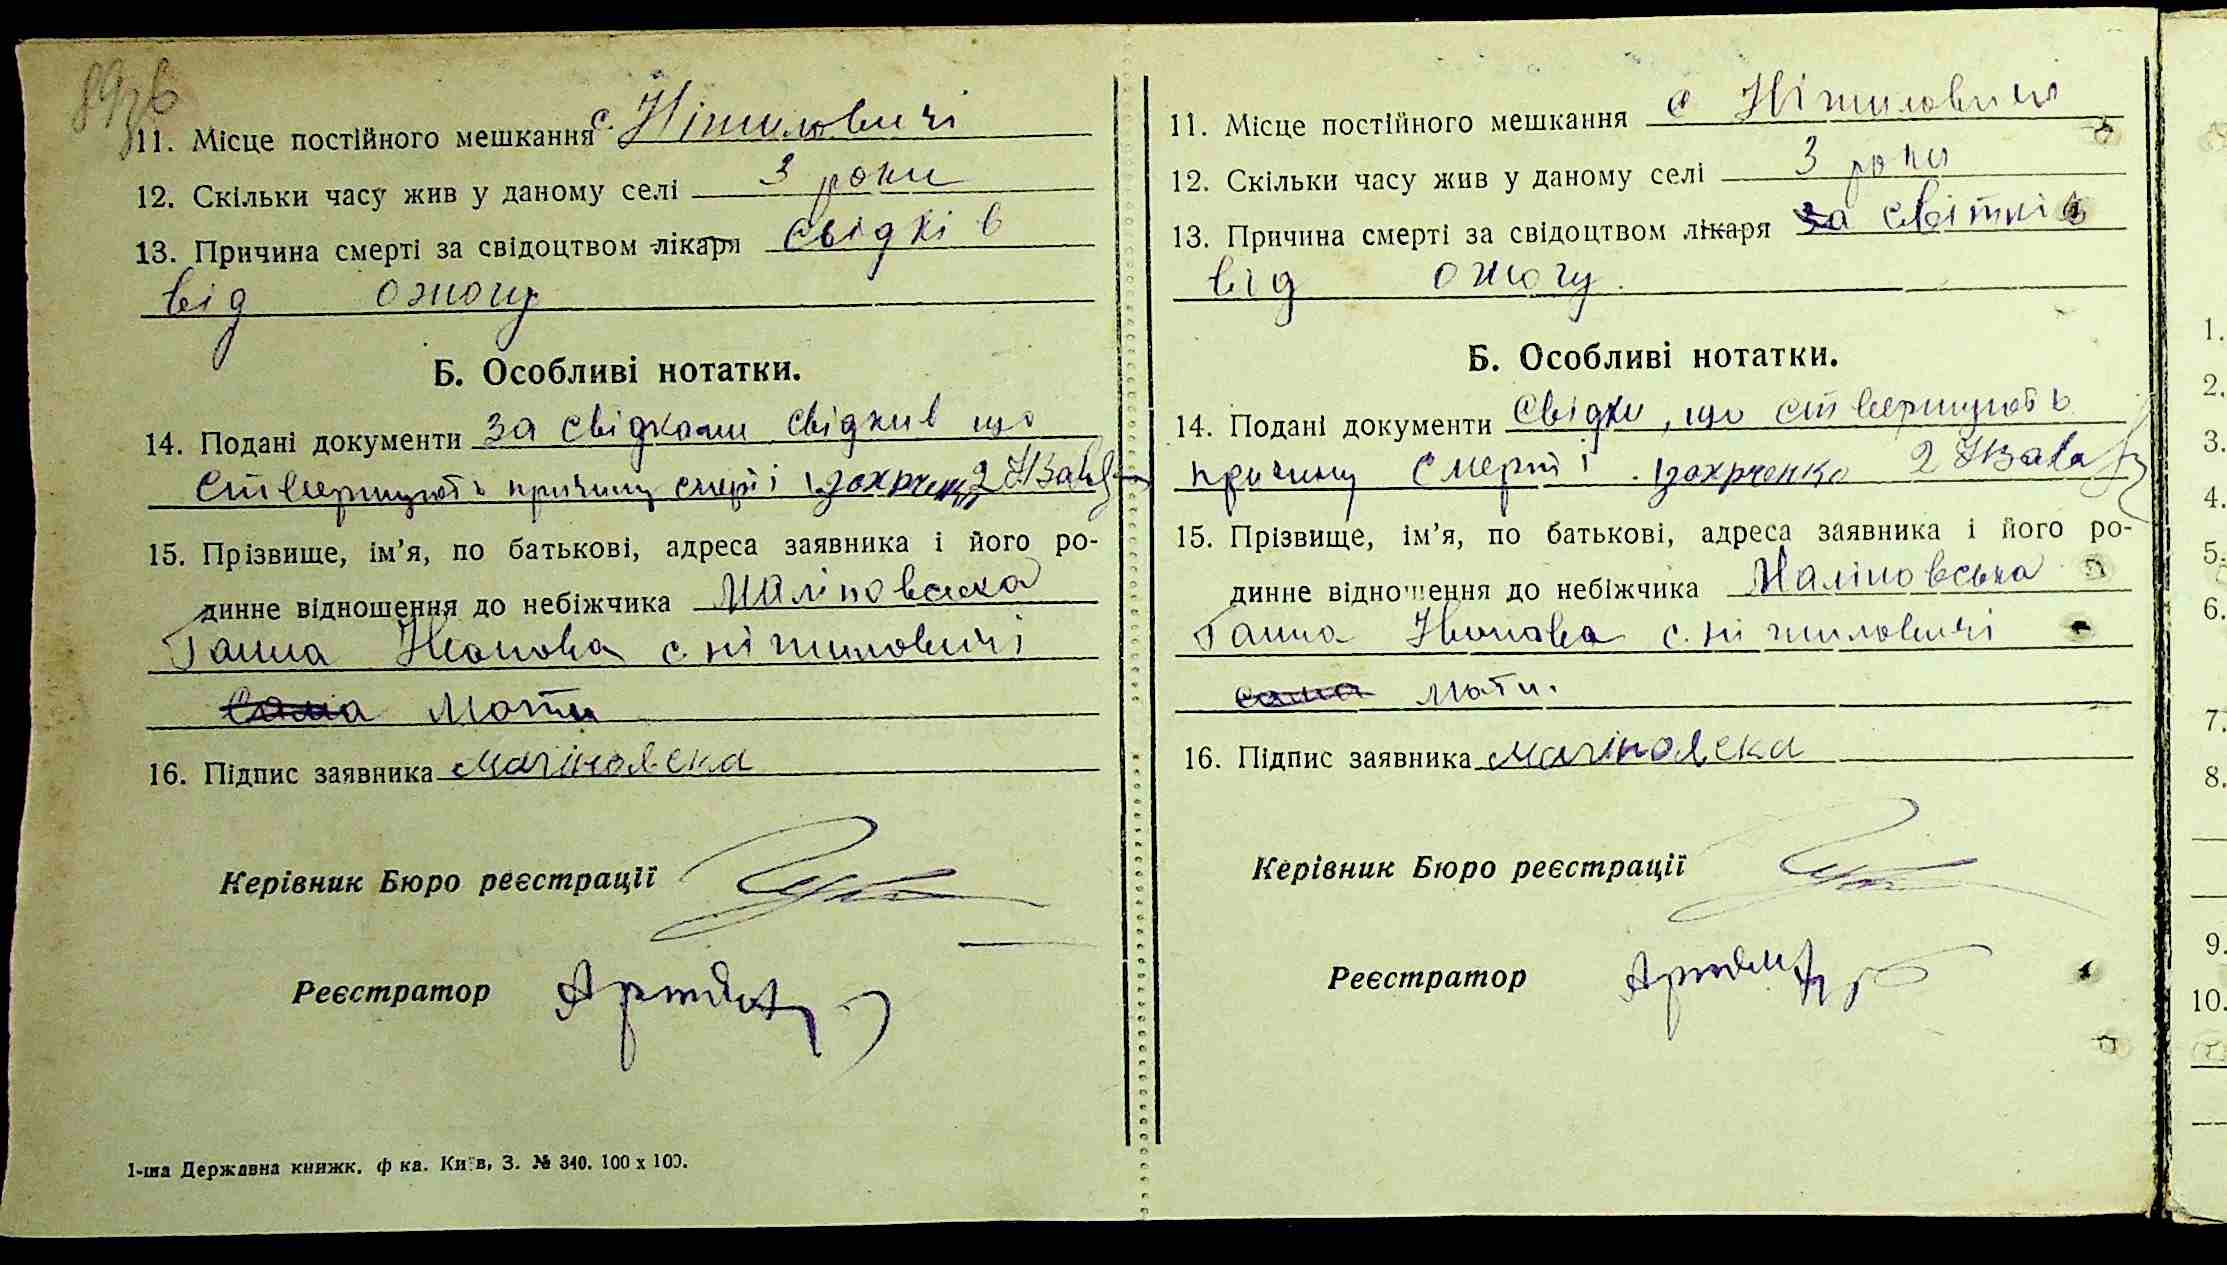 11. Місце постійного мешкання с. Ніжиловичі
12. Скільки часу жив у даному селі 3 роки
13. Причина смерті за свідоцтвом лікаря свідків
від ожогу
Б. Особливі нотатки.
14. Подані документи За свідками свідків що
ствержують причину смерті
15. Прізвище, ім’я, по батькові, адреса заявника і його ро-
динне відношення до небіжчика Маліновська
Ганна с. Ніжиловичі
сама мати
16. Підпис заявника Маліновска
Керівник Бюро реєстрації
Реєстратор
1-ша Державна книжк. ф ка. Київ, З. № 340. 100 x 100.
11. Місце постійного мешкання с Ніжиловичі
12. Скільки часу жив у даному селі 3 роки
13. Причина смерті за свідоцтвом лікаря за світків
від ожогу.
Б. Особливі нотатки.
14. Подані документи Свідки, що ствержують
причину смерті
15. Прізвище, ім’я, по батькові, адреса заявника і його ро-
динне відношення до небіжчика Маліновська
Ганна с. Ніжиловичі
сама мати.
16. Підпис заявника Маліновска
Керівник Бюро реєстрації
Реєстратор
1.
2.
3.
4.
5.
6.
7.
8.
9.
10.